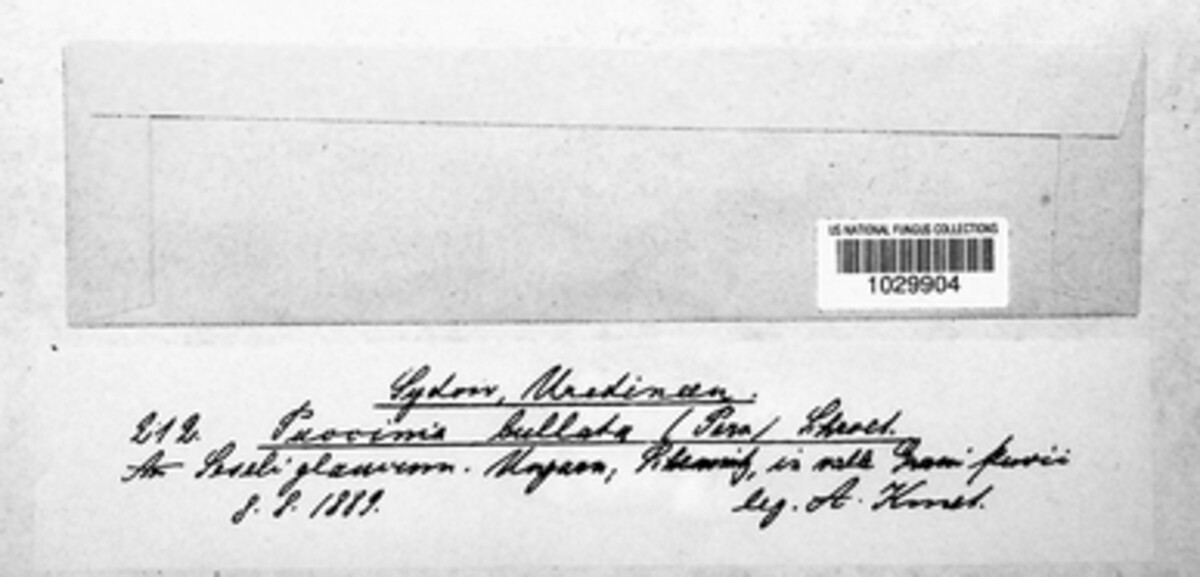 US NATIONAL FUNGUS COLLECTIONS
1029904
Sydow, Uredineen.
212. Puccinia bullata (Pers) Schroet.
An Seseli glaucum. Ungarn, in valle Grani fluvii
8. 8. 1889. leg. A. Kmet.